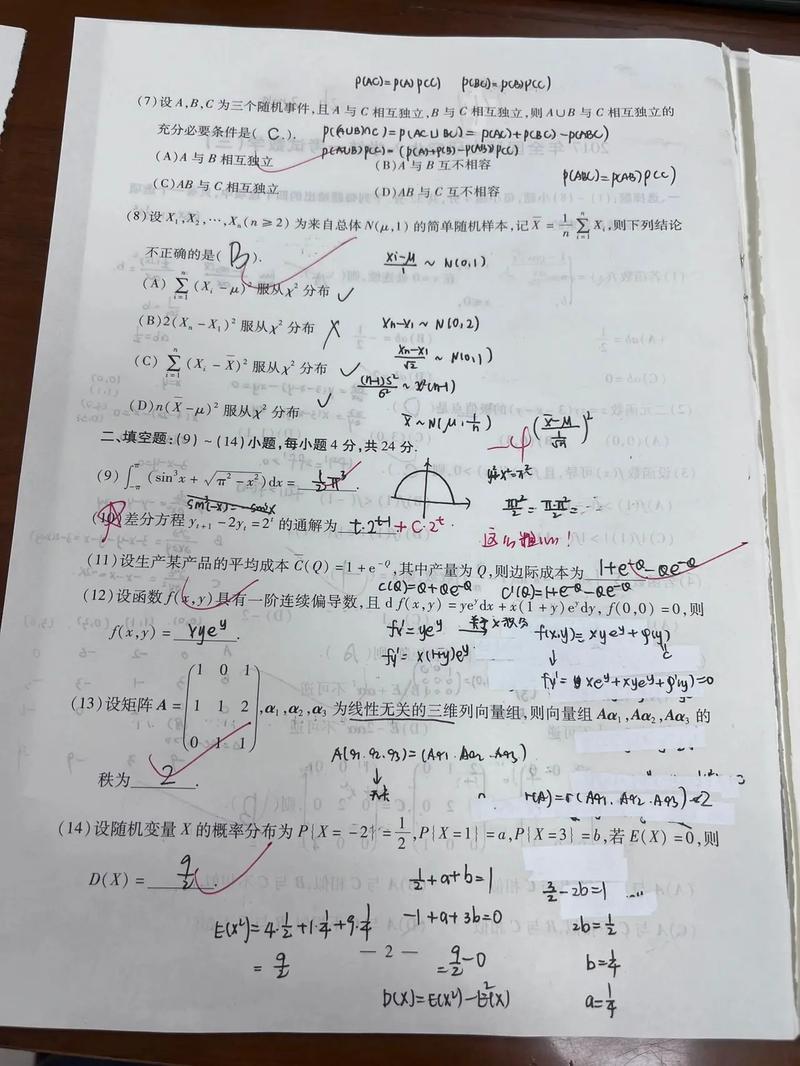 P(AC)=P(A)P(C) P(BC)=P(B)P(C)
(7)设A,B,C为三个随机事件,且A与C相互独立,B与C相互独立,则A∪B与C相互独立的
充分必要条件是( C ). P(A∪B)∩C)=P(AC∪BC)=P(AC)+P(BC)-P(ABC)
P(A∪B)P(C)=(P(A)+P(B)-P(AB))P(C)
(A)A与B相互独立 (B)A与B互不相容
P(ABC)=P(AB)P(C)
(C)AB与C相互独立 (D)AB与C互不相容
(8)设X₁,X₂,⋯,Xₙ(n≥2)为来自总体N(μ,1)的简单随机样本,记X̄=1/n ∑ᵢ₌₁ⁿ Xᵢ,则下列结论
不正确的是( B ). (Xi-μ)/1 ~ N(0,1)
(A) ∑ᵢ₌₁ⁿ (Xᵢ-μ)²服从χ²分布 ✓
(B)2(Xₙ-X₁)²服从χ²分布 ✗ Xn-X1 ~ N(0,2)
(Xn-X1)/√2 ~ N(0,1)
(C) ∑ᵢ₌₁ⁿ (Xᵢ-X̄)²服从χ²分布 ✓ (n-1)S²/σ² ~ χ²(n-1)
(D)n(X̄-μ)²服从χ²分布 ✓ X̄~N(μ,1/n) ((X̄-μ)/(1/√n))²
-4
二、填空题:(9)~(14)小题,每小题4分,共24分.
(9) ∫₋π^π (sin³x+√(π²-x²))dx= 1/2 π³ . y²+x²=π²
ππ²/2 = π·π²/2 =
(10)差分方程yₜ₊₁-2yₜ=2ᵗ的通解为 t·2ᵗ⁻¹+C·2ᵗ.
这么粗心!
(11)设生产某产品的平均成本C̄(Q)=1+e⁻Q,其中产量为Q,则边际成本为 1+e⁻Q-Qe⁻Q
C(Q)=Q+Qe⁻Q C'(Q)=1+e⁻Q-Qe⁻Q
(12)设函数f(x,y)具有一阶连续偏导数,且df(x,y)=yeʸdx+x(1+y)eʸdy,f(0,0)=0,则
f(x,y)= xyeʸ . fx'=yeʸ 关于x积分 f(x,y)=xyeʸ+φ(y)
c
fy'=x(1+y)eʸ ↓
fy'=xeʸ+xyeʸ+φ'(y)=0
(13)设矩阵A=(1 0 1
1 1 2
0 1 1),α₁,α₂,α₃为线性无关的三维列向量组,则向量组Aα₁,Aα₂,Aα₃的
秩为 2 . A(α1.α2.α3)=(Aα1.Aα2.Aα3)
↓
无关 r(A)=r(Aα1.Aα2.Aα3)=2
(14)设随机变量X的概率分布为P{X=-2}=1/2,P{X=1}=a,P{X=3}=b,若E(X)=0,则
D(X)= 9/2 . 1/2+a+b=1 3/2-2b=1
-1+a+3b=0 2b=1/2
E(X²)=4·1/2+1·1/4+9·1/4
— 2 —
=9/2 =9/2-0 b=1/4
D(X)=E(X²)-E²(X) a=1/4